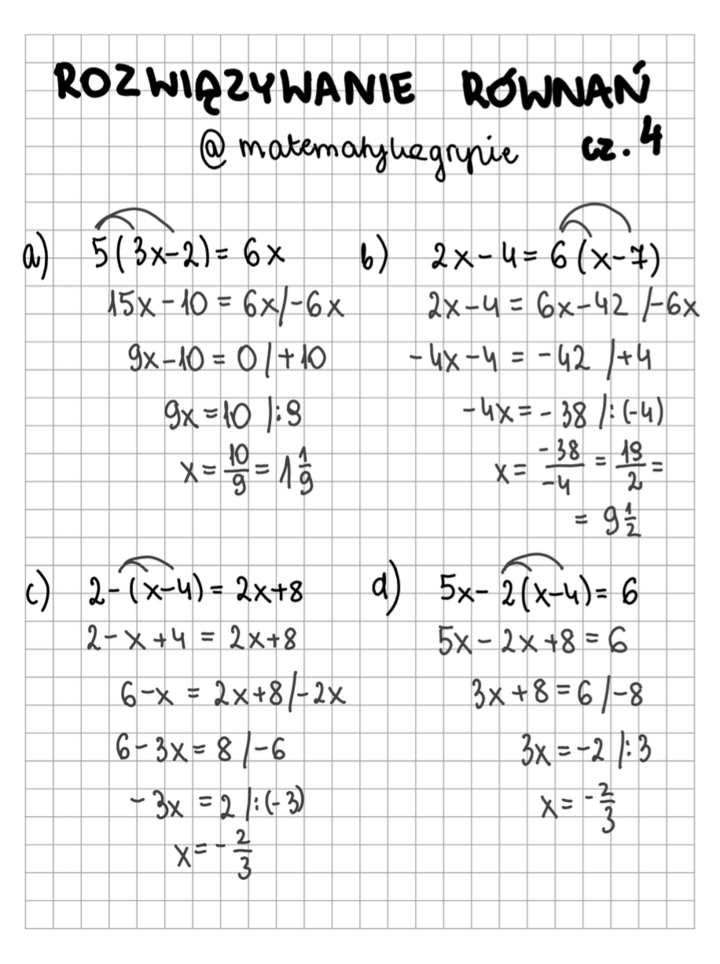 ROZWIĄZYWANIE RÓWNAŃ
@matematykagrypie cz. 4
a) 5(3x-2) = 6x
15x - 10 = 6x /-6x
9x-10 = 0 /+10
9x = 10 /:9
x = 10/9 = 1 1/9
b) 2x - 4 = 6(x-7)
2x-4 = 6x-42 /-6x
-4x-4 = -42 /+4
-4x = -38 /:(-4)
x = -38/-4 = 19/2 =
= 9 1/2
c) 2-(x-4) = 2x+8
2-x+4 = 2x+8
6-x = 2x+8 /-2x
6-3x = 8 /-6
-3x = 2 /:(-3)
x = -2/3
d) 5x - 2(x-4) = 6
5x - 2x + 8 = 6
3x + 8 = 6 /-8
3x = -2 /:3
x = -2/3